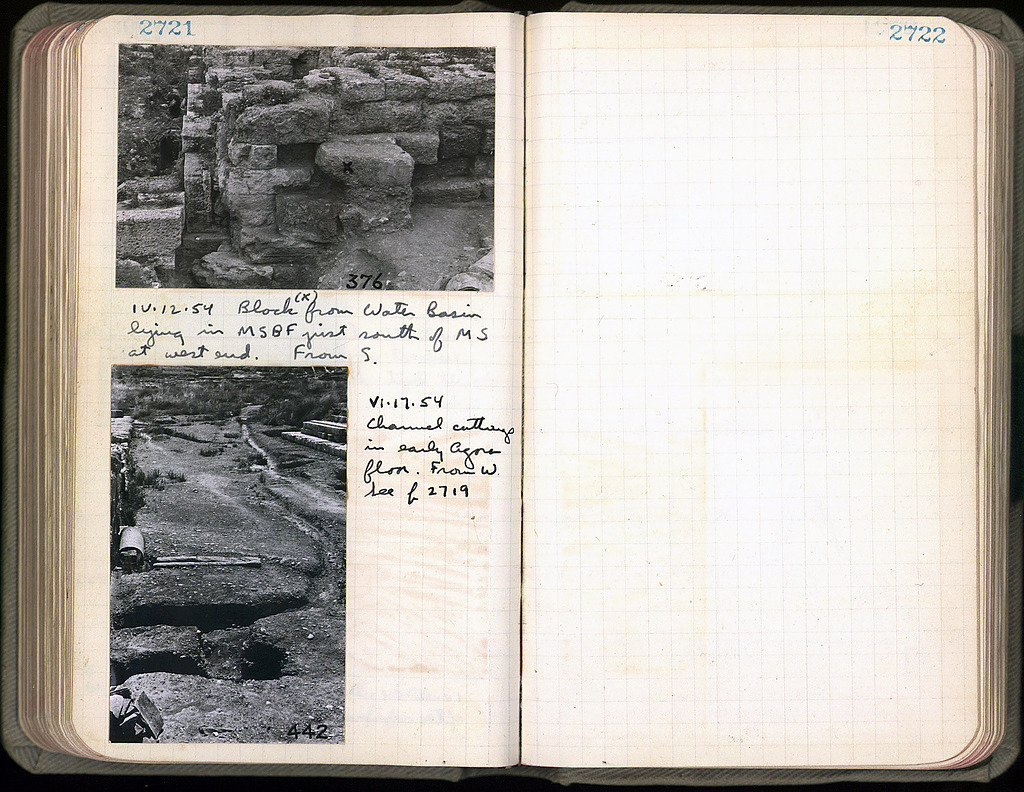 2721
2722
x
376
(x)
IV.12.54 Block from Water Basin
lying in MSBF just south of MS
at west end. From S.
VI.17.54
Channel cuttings
in early Agora
floor. From W.
See p 2719
442